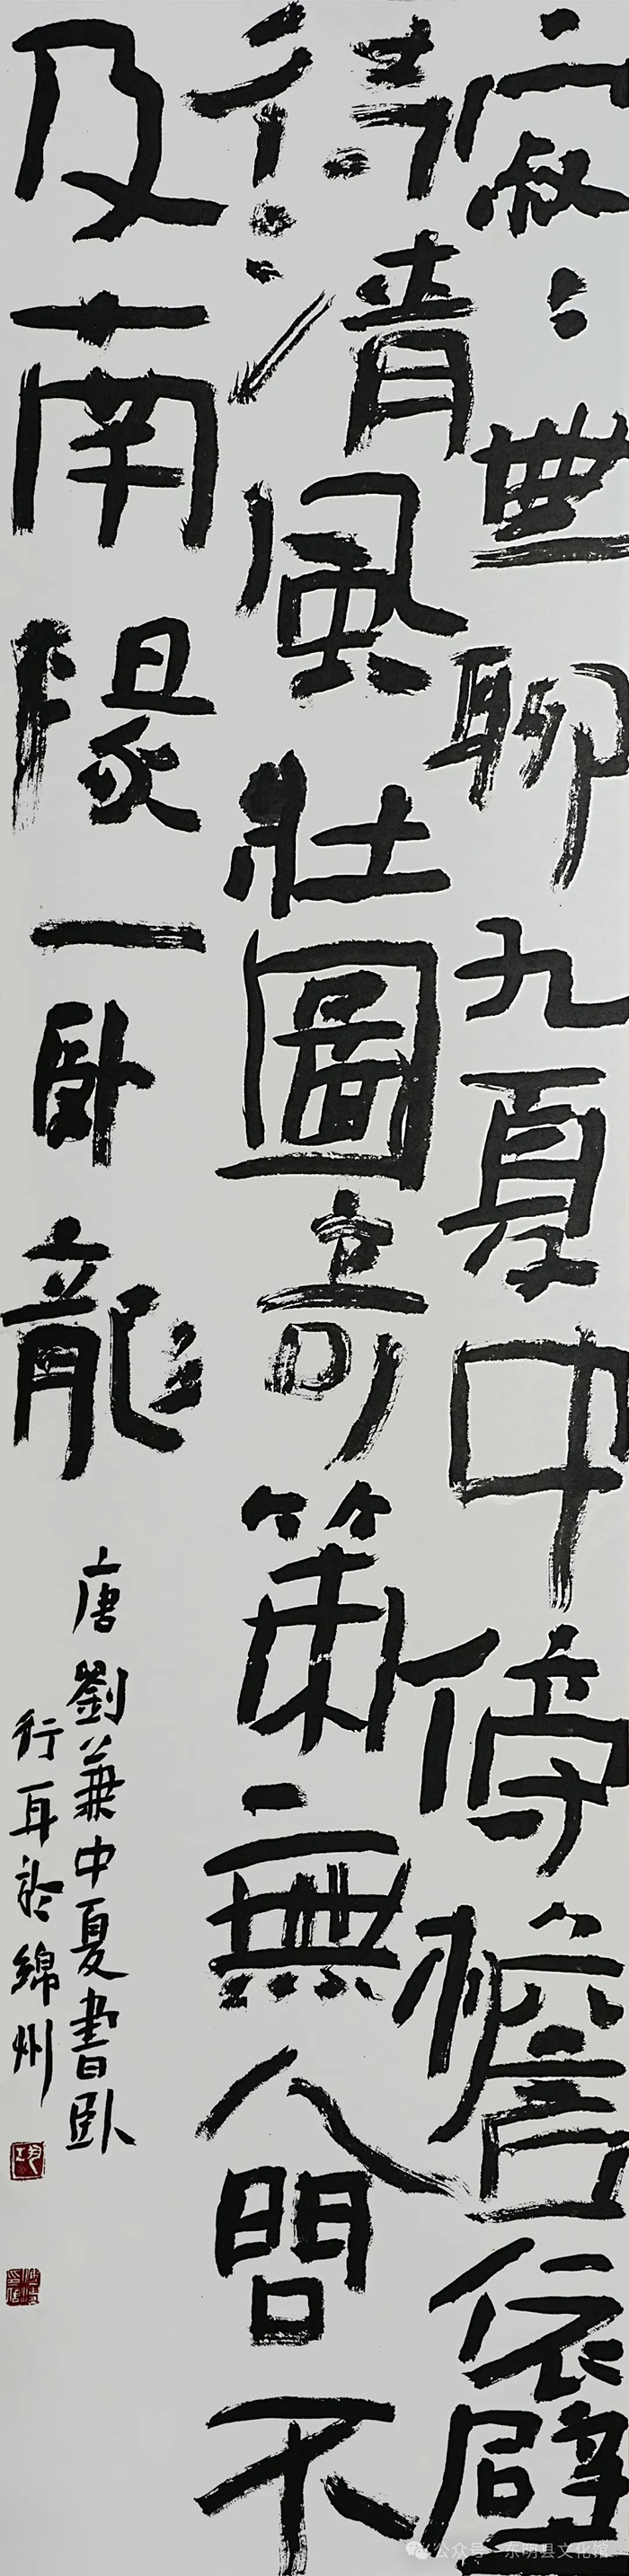 寂〻無聊九夏中傍檐依壁
待清風壯圖奇策無人問不
及南陽一臥龍
唐劉兼中夏書臥
行耳於綿州
公众号·东明县文化馆